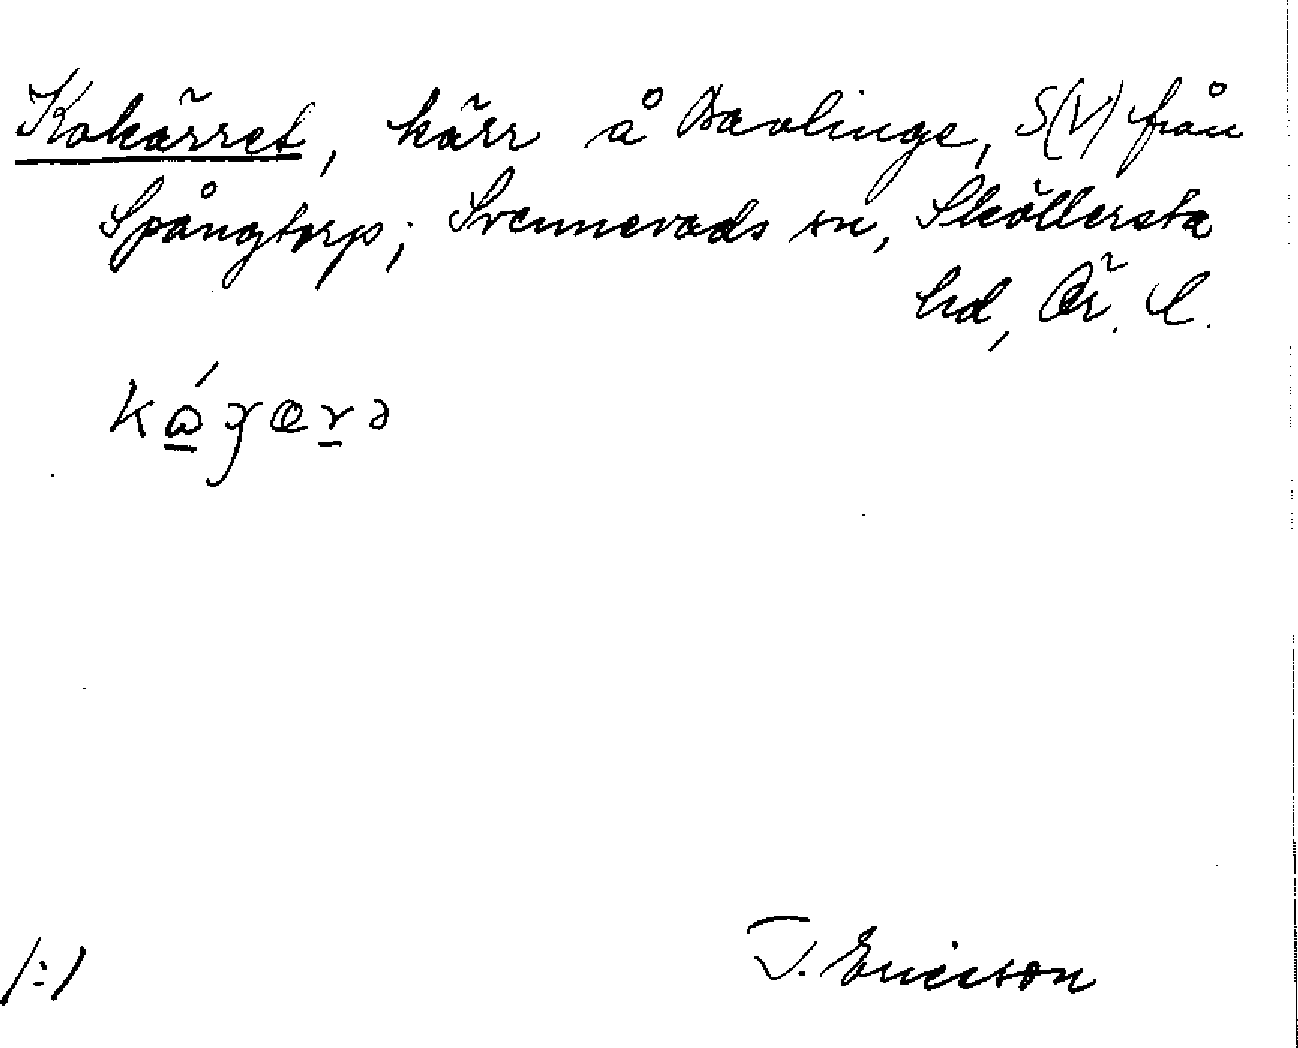 Kokärret, kärr å Bavlinge, S(V) från
Spångtorp; Svennevads sn, Sköllersta
hd, Ör. l.
T. Ericson
/:/